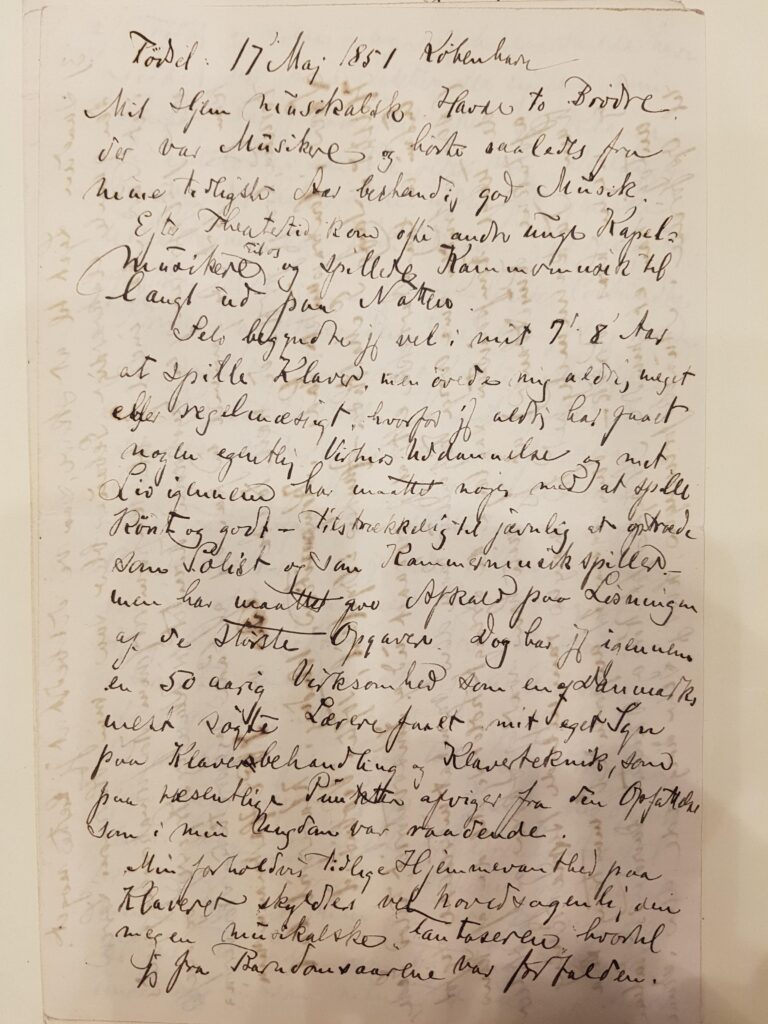 Födsel: 17' Maj 1851 København
Mit Hjem musikalsk Havde to Brödre
der var Musikere og hörte saaledes fra
mine tidligste Aar bestandig god Musik.
Efter Theatertid kom ofte andre unge Kapel=
musikere til os og spillede Kammermusik til
langt ud paa Natten.
Selv begyndte jeg vel i mit 7' 8' Aar
at spille Klaver, men övede mig aldrig meget
eller regelmæsigt, hvorfor jeg aldrig har faaet
nogen egentlig Virtuos Uddannelse og mit
Liv igennem har maattet nöjes med at spille
Könt og godt – tilstrækkelig til jævnlig at optræde
som Solist og som Kammermusikspiller –
men har maattet give Afkald paa Lösningen
af de störste Opgaver. Dog har jeg igennem
en 50 aarig Virksomhed som en af Danmarks
mest sögte Lærere faaet mit eget Syn
paa Klaverbehandling og Klaverteknik, som
paa væsentlige Punkter afviger fra den Opfattelse
som i min Ungdom var raadende.
Min forholdsvis tidlige Hjemmevanthed paa
Klaveret skyldtes vel hovedsagenlig den
megen musikalske "Fantaseren" hvortil
jeg fra Barndomsaarene var forfalden.